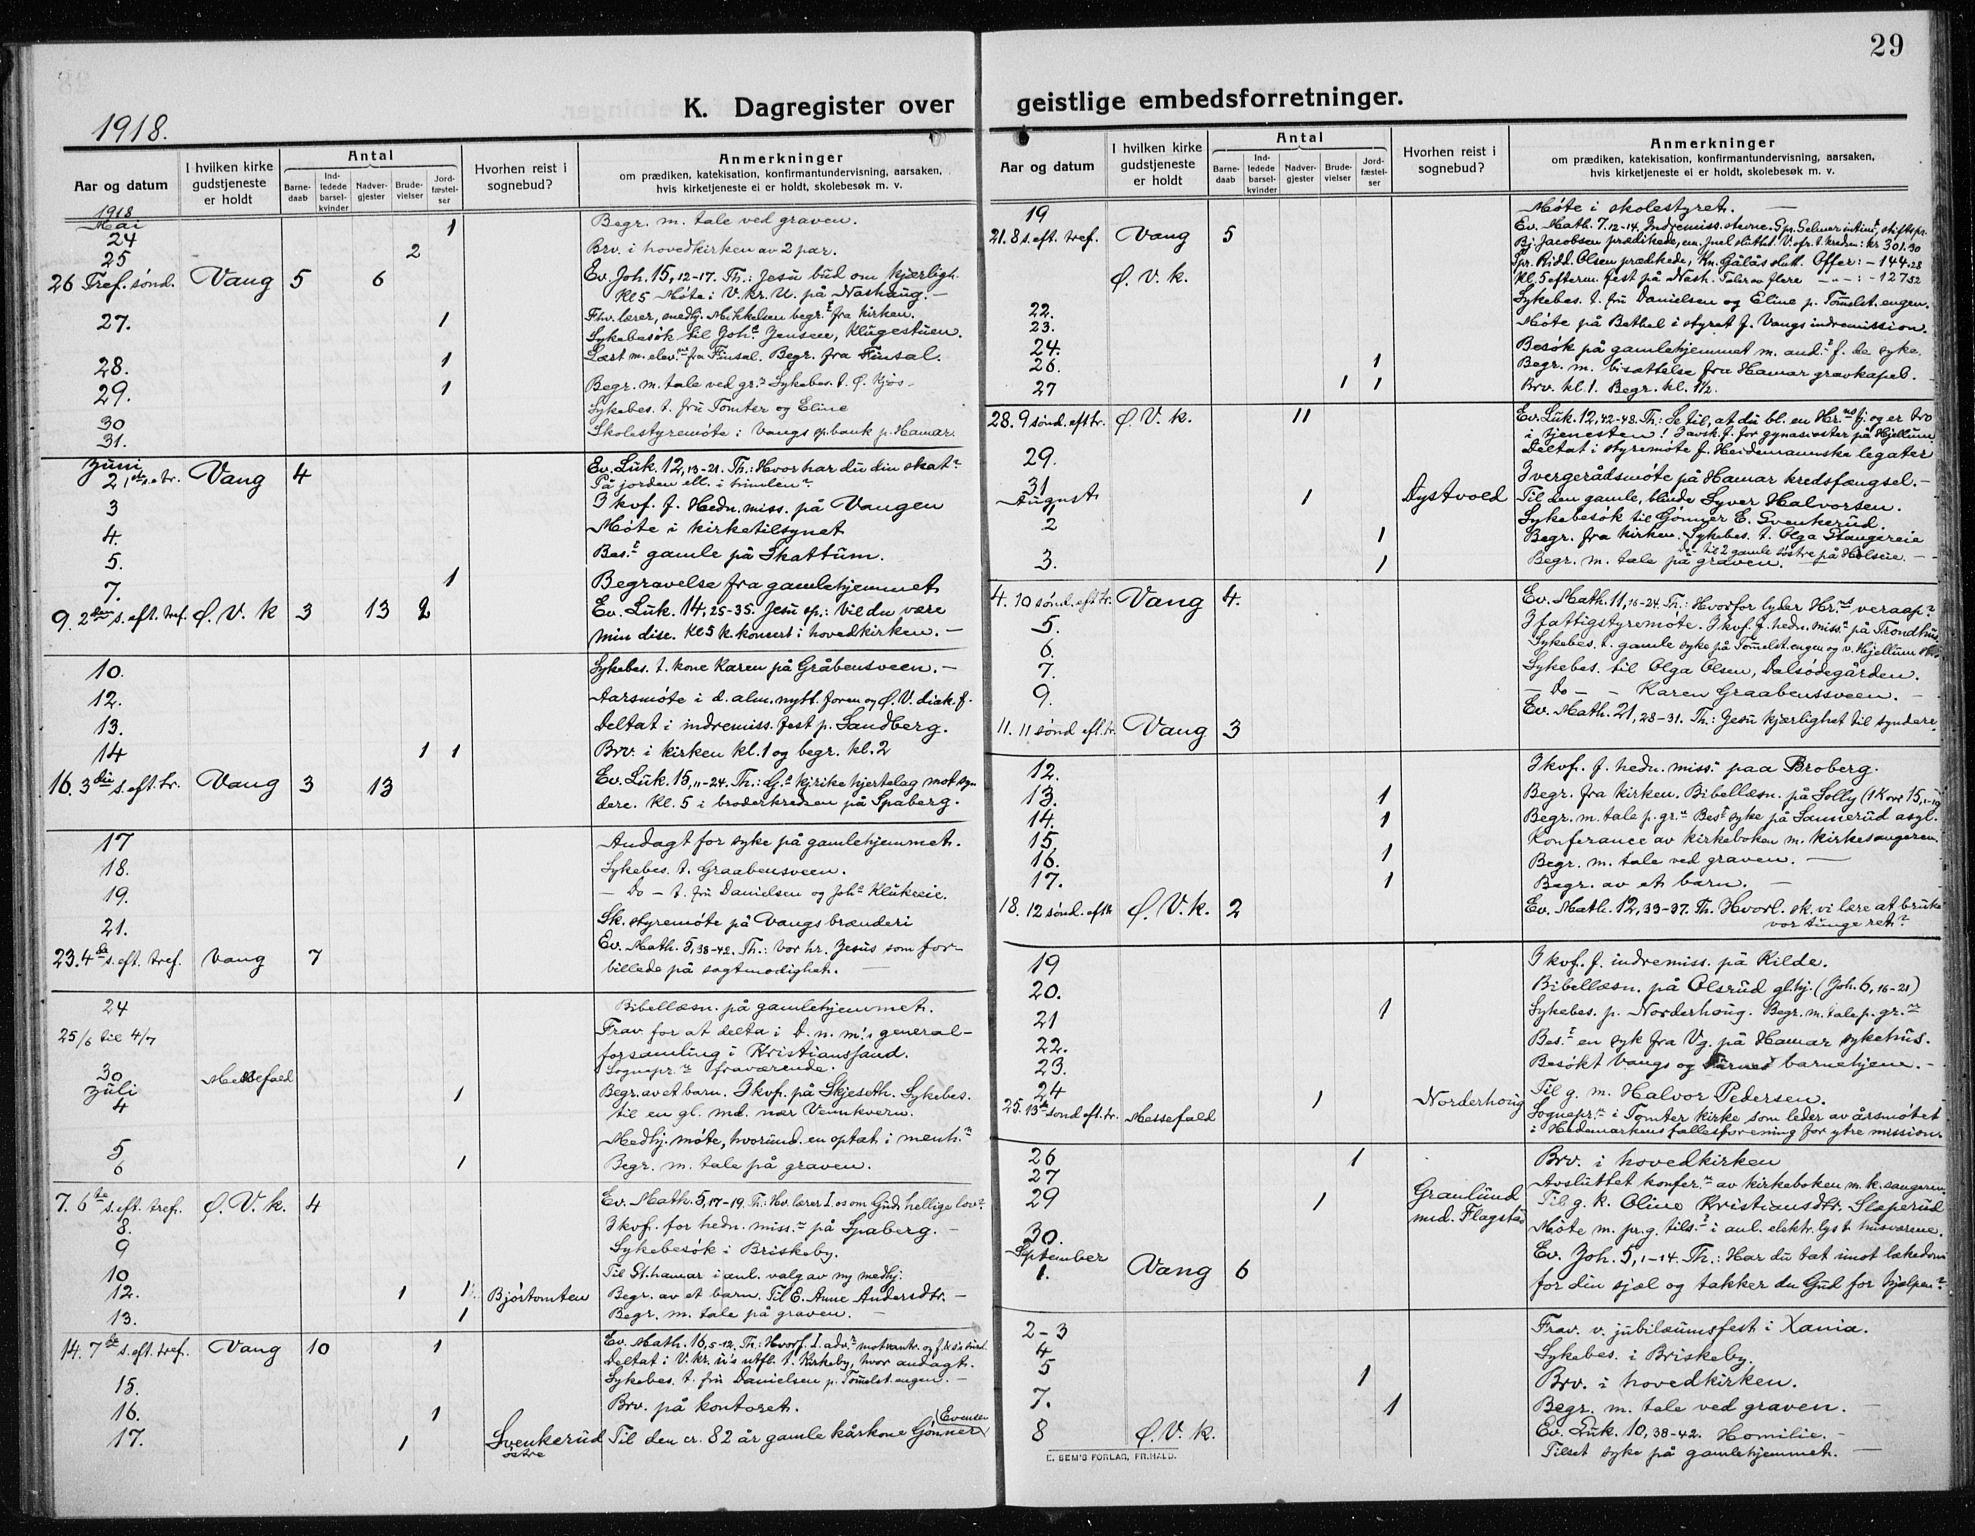 29
K. Dagregister over geistlige embedsforretninger.
1918.
Aar og datum
I hvilken kirke gudstjeneste er holdt
Antal
Barnedaab
Indledede barselkvinder
Nadvergjester
Brudevielser
Jordfæstelser
Hvorhen reist i sognebud?
Anmerkninger
om prædiken, katekisation, konfirmantundervisning, aarsaken,
hvis kirketjeneste ei er holdt, skolebesøk m. v.
1918
Mai
24 1 Begr. m. tale ved graven.
25 2 Brv. i hovedkirken av 2 par.
26 Tref. sønd. Vang 5 6 Ev. Joh. 15, 12-17. Th.: Jesu bud om kjærligh.
Kl 5 Møte i V. kr. U. på Nashaug. -
27. 1 Fhv. lærer, medhj. Mikkelsen begr. fra kirken.
Sykebesøk til Joh. Jensen, Klugestuen.
28. 1 Læst m. elev. fra Finsal. Begr. fra Finsal.
29. 1 Begr. m. tale ved gr. Sykebes. t. O. Kjos -
30 Sykebes. t. fru Tomter og Eline
31. Skolestyremøte i Vangs sp.bank p. Hamar.
Juni
2 1ste s. e. tr. Vang 4 Ev. Luk. 12, 13-21. Th.: Hvor har du din skat?
På jorden ell. i himlen?
3 I kvf. f. Hedn. miss. på Vangen
4. Møte i kirketilsynet
5. Bes. gamle på Skattum.
7. 1 Begravelse fra gamlehjemmet
9. 2den s. eft. tref. Ø. V. k 3 13 2 Ev. Luk. 14, 25-35. Jesu sp.: Vil du være
min disc. Kl 5 k. konsert i hovedkirken. -
10. Sykebes. t. kone Karen på Gråbensveen. -
12. Aarsmøte i d. alm. nytt. foren og Ø. V. diak. f.
13. Deltat i indremiss. fest p. Sandberg.
14 1 1 Brv. i kirken kl. 1 og begr. kl. 2
16. 3die s. eft. tr. Vang 3 13 Ev. Luk. 15, 11-24. Th.: G. kjirike hjertelag mot syn
dere. Kl. 5 i broderkredsen på Spaberg.
17 Andagt for syke på gamlehjemmet.
18. Sykebes. t. Graabensveen.
19. - Do - t. fru Danielsen og Joh. Klukeeie.
21. Sk. styremøte på Vangs brænderi
23. 4de s. eft. tref. Vang 7 Ev. Math. 5, 38-42. Th.: Vor hr. Jesus som for-
billede på sagtmodighet. -
24 Bibellæsn. på gamlehjemmet.
25/6 til 4/7 Frav. for at delta i D. n. m.'s general-
forsamling i Kristianssand.
30 Messefald Sognepr. fraværende.
Juli
4 1 Begr. av et barn. I kvf. på Skjeseth. Sykebes.
til en gl. md. nær Vennkvern.
5 Medhj. møte, hvorund. en optat i menh.
6 1 Begr. m. tale på graven.
7. 6te s. eft. tref. Ø. V. k. 4 Ev. Math. 5, 17-19. Th.: Hv. lærer I os om Guds hellige lov?
8. I kvf. for hedn. miss. på Spaberg. -
9 Sykebesøk i Briskeby.
10 Til St. hamar i anl. valg av ny medhj.
12. 1 1 Bjørtomten Begr. av et barn. Til E. Anne Andersdtr. -
13. 1 Begr. m. tale på graven. -
14. 7de s. eft. tref. Vang 10 1 Ev. Math. 16, 5-12. Th.: Hvorf. I adv.
Deltat i V. kr. u's utfl. t. Kirkeby, hvor andagt.
15. Sykebes. t. fru Danielsen p. Tommelst. engen. -
16. 1 Brv. på kontoret.
17. 1 Svenkerud østre Til den cr. 82 år gamle kårkone Gønner Evensen
19 Møte i skolestyret. -
21. 8 s. eft. tref. Vang 5 Ev. Math. 7, 12-14. Indremiss. stevne. Spr. Selmer
Bj. Jacobsen prædikede, kr 301.30
Ø. V. k. Spr. Ridd. Olsen prædkede, Kn. Gålås slutt. Offer: - 144.28
Kl. 5 efterm. fest på Nash. Taler av flere - - : - 127.52
22. Sykebes. t. fru Danielsen og Eline p. Tommelst. engen.
23. Møte på Bethel i styret f. Vangs indremission.
24. Besøk på gamlehjemmet m. and. f. de syke.
26. 1 Begr. m. bisættelse fra Hamar gravkapel. -
27 1 1 Brv. kl. 1. Begr. kl. 1½.
28. 9 sønd. eft tr. Ø. V. k. 11 Ev. Luk. 12, 42-48. Th: Se til, at du bl. en Hr.ns tj. og er tro
i tjenesten! Javsk. f. for gymnasiaster på Hjellum
29. Deltat i styremøte f. Heidemannske legater
31 I vergerådsmøte på Hamar kredsfængsel. -
August
1 1 Dystvold Til den gamle, blinde Syver Halvorsen.
Sykebesøk til Gønner E. Svenkerud.
2 1 Begr. fra kirken. Sykebes. t. Olga Stangereie
3. 1 Begr. m. tale på graven. til 2 gamle søstre på Holseie. -
4. 10 sønd. eft tr. Vang 4. Ev. Math. 11, 16-24. Th.: Hvorfor lyder Hr.ns veraap?
5. I fattigstyremøte. I kvf. f. hedn. miss. på Trondhus
6. Sykebes. t. gamle syke på Tommelst. engen og v. Hjellum
7. Sykebes. til Olga Olsen, Dalsødegården.
9. - Do - - Karen Graabenssveen. -
11. 11 sønd eft. tr. Vang 3 Ev. Math. 21, 28-31. Th.: Jesu kjærlighet til syndere.
12. I kvf. f. hedn. miss. paa Broberg.
13. 1 Begr. fra kirken. Bibellæsn. på Solly (1 Kor 15, 1-19
14. 1 Begr. m. tale p. gr. Bes. syke på Sannerud asyl.
15. Konferance av kirkeboken m. kirkesangeren.
16. 1 Begr. m. tale ved graven. -
17. 1 Begr. av et barn. -
18. 12 sønd. eft tr Ø. V. k. 2 Ev. Math. 12, 33-37. Th. Hvorl. sk. vi lære at bruke
vor tunge ret?
19 I kvf. f. indremiss. på Kilde.
20. Bibellæsn. på Olsrud gl.hj. (Joh. 6, 16-21)
21 1 Sykebes. p. Norderhoug. Begr. m. tale p. gr.
22. Bes. en syk fra Vg. på Hamar sykehus.
23. Besøkt Vangs og Furnes barnehjem. -
24 1 Norderhoug Til g. m. Halvor Pedersen.
25. 13de sønd eft. tr. Messefald Sognepr. i Tomter kirke som leder av årsmøtet
i Hedemarkens fællesforening for ytre mission.
26 1 Brv. i hovedkirken
27 Avsluttet konfer. av kirkeboken m. k. sangeren.
29 1 Granlund md. Flagstad Til g. k. Oline Kristiansdtr. Slæperud
30. Møte m. pr.g. tils. i anl. elektr. lys t. husværene.
September
1. Vang 6 Ev. Joh. 5, 1-14. Th.: Har du tat imot lækedom
for din sjæl og takker du Gud for hjælpen?
2-3 Frav. v. jubilæumsfest i Xania.
4 Sykebes. i Briskeby.
5 1 Brv. i hovedkirken.
7. 1 Begr. m. tale ved graven. -
8 Ø. V. k. Ev. Luk. 10, 38-42. Homilie. -
Tilset syke på gamlehjemmet. -
E. SEM'S FORLAG, FR.HALD.